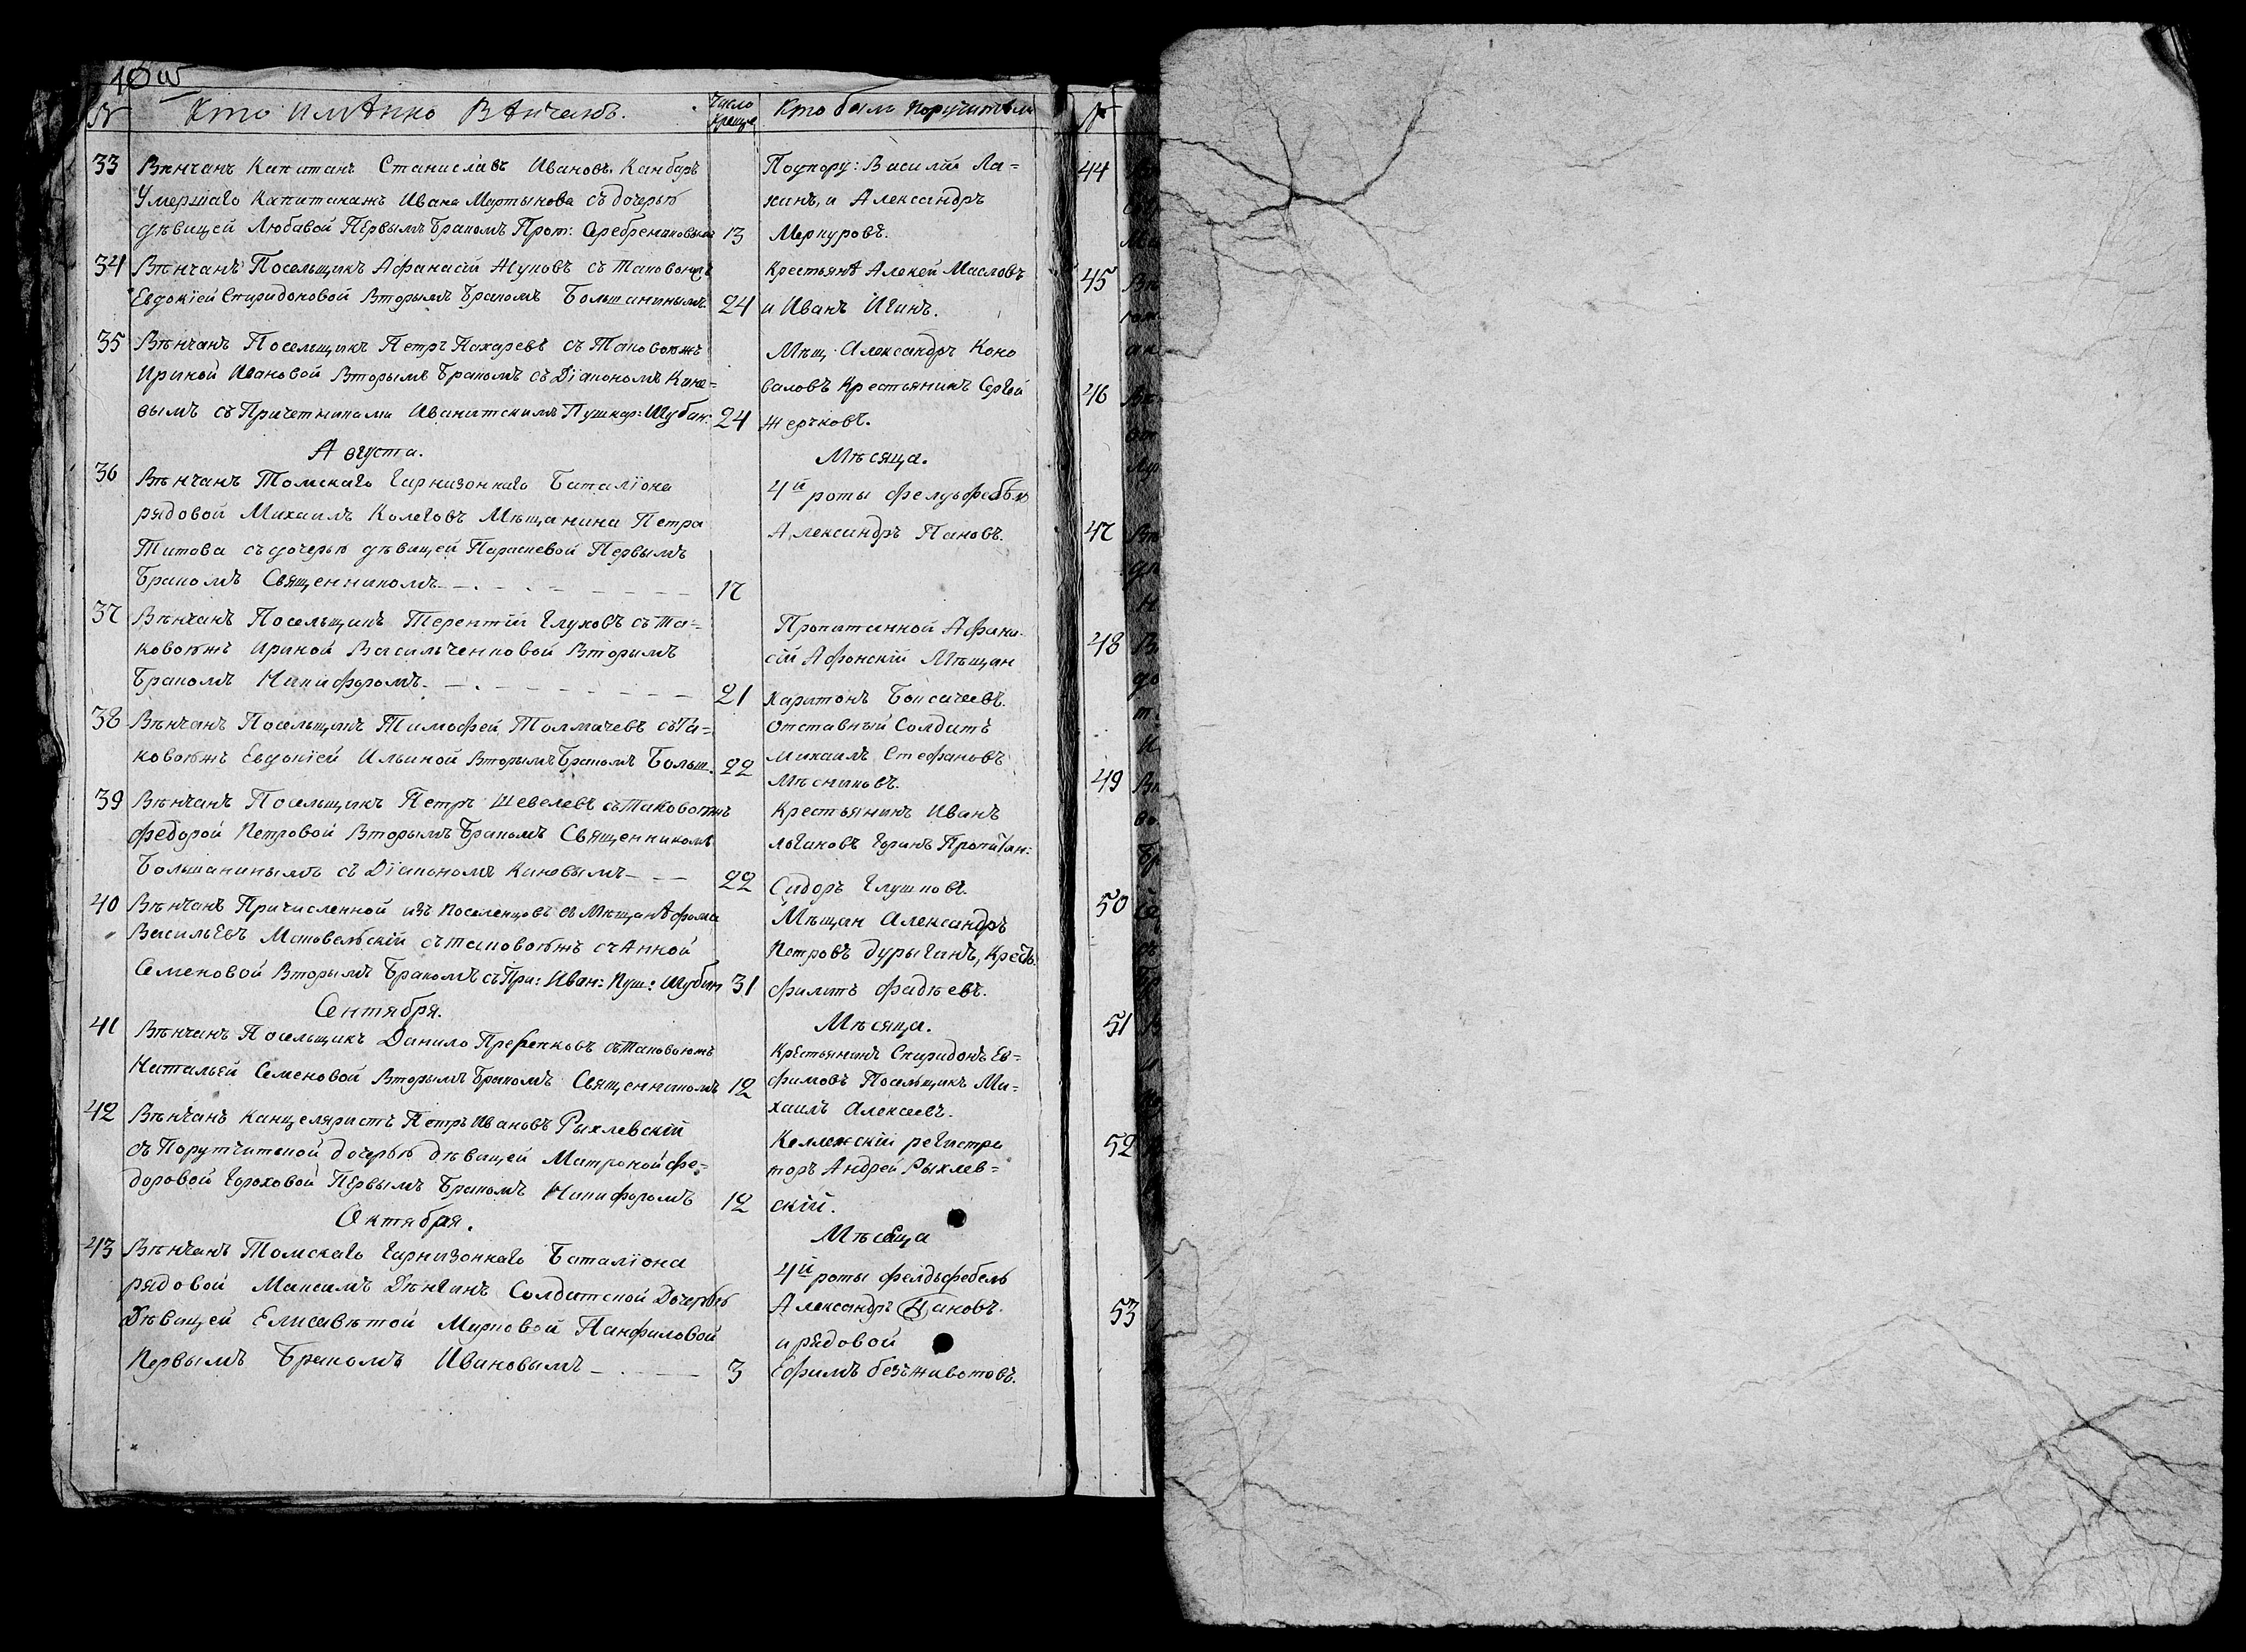 № Кто имянно Вѣнчанъ. Число Кто былъ поручителм
33 Вѣнчанъ Капитанъ Станиславъ Ивановъ Канбаръ
Умершаго Капитана Ивана Мартынова съ дочерью
дѣвицей Любавой Первымъ бракомъ Прот: Серебрениковымъ 13
Подпору: Василій Ла=
хинъ, и Александръ
Меркуровъ.
34 Вѣнчанъ Посельщикъ Афанасій Жуковъ съ таковоюжъ
Евдокіей Спиридоновой Вторымъ бракомъ Большанинымъ 24
Крестьянѣ Алексѣй Масловъ
и Иванъ Игинъ.
35 Вѣнчанъ Посельщикъ Петръ Кахаревъ съ таковоюжъ
Ириной Ивановой Вторымъ бракомъ съ Діакономъ Кине=
вымъ съ Причетниками Иванитскимъ Пушкар: Шубин: 24
Мѣщ. Александръ Коно
валовъ Крестьянинъ Сергѣй
Жерчковъ.
Августа. Мѣсяца.
36 Вѣнчанъ Томскаго Гарнизоннаго Баталіона
рядовой Михаилъ Колеговъ Мѣщанина Петра
Титова съ дочерью дѣвицей Парасковой Первымъ
Бракомъ Священникомъ 17
4й роты фелдфебель
Александръ Пановъ.
37 Вѣнчанъ Посельщикъ Терентій Глуховъ съ та=
ковоюжъ Ириной Васильченковой Вторымъ
Бракомъ Никифоромъ 21
Пропитанной Афана
сій Афонскій Мѣщан
Харитонъ Боисачеевъ.
38 Вѣнчанъ Посельщикъ Тимофей Толмачевъ съ та=
ковоюжъ Евдокіей Ильиной Вторымъ бракомъ Больш. 22
Отставный Солдатъ
Михаилъ Стефановъ
Мѣсниковъ.
39 Вѣнчанъ Посельщикъ Петръ Шевелевъ съ таковоюжъ
Федорой Петровой Вторымъ бракомъ Священникомъ
Большанинымъ съ Діакономъ Киневымъ 22
Крестьянинъ Иванъ
Логиновъ Горинъ Пропитан:
Сидоръ Глушковъ.
40 Вѣнчанъ Причисленной изъ поселенцовъ въ Мѣщанѣ Фома
Васильевъ Маковельскій съ таковоюжъ съ Анной
Семеновой Вторымъ бракомъ съ При: Иван: Пуш: Шубин 31
Мѣщан Александръ
Петровъ Дурыгинъ, Крест.
Филипъ Фадѣевъ.
Сентября. Мѣсяца.
41 Вѣнчанъ Посельщикъ Данило съ таковоюжъ
Натальей Семеновой Вторымъ бракомъ Священникомъ 12
Крестьянинъ Спиридонъ Ев=
фимовъ Посельщикъ Ми=
хаилъ Алексеевъ.
42 Вѣнчанъ Канцеляристъ Петръ Ивановъ Рыхлевскій
съ Порутчитской дочерью дѣвицей Матроной Фе=
доровой Гороховой Первымъ бракомъ Никифоромъ 12
Коллежскій регистра
торъ Андрей Рыхлев=
скій.
Октября. Мѣсеца
43 Вѣнчанъ Томскаго Гарнизоннаго Баталіона
рядовой Максимъ Дѣнгинъ Солдатской дочерью
Дѣвицей Елисаветой Марковой Панфиловой
Первымъ Бракомъ Ивановымъ 3
4й роты фелдьфебель
Александръ Пановъ.
и рядовой
Ефимъ безъживотовъ.
44
45
46
47
48
49
50
51
52
53